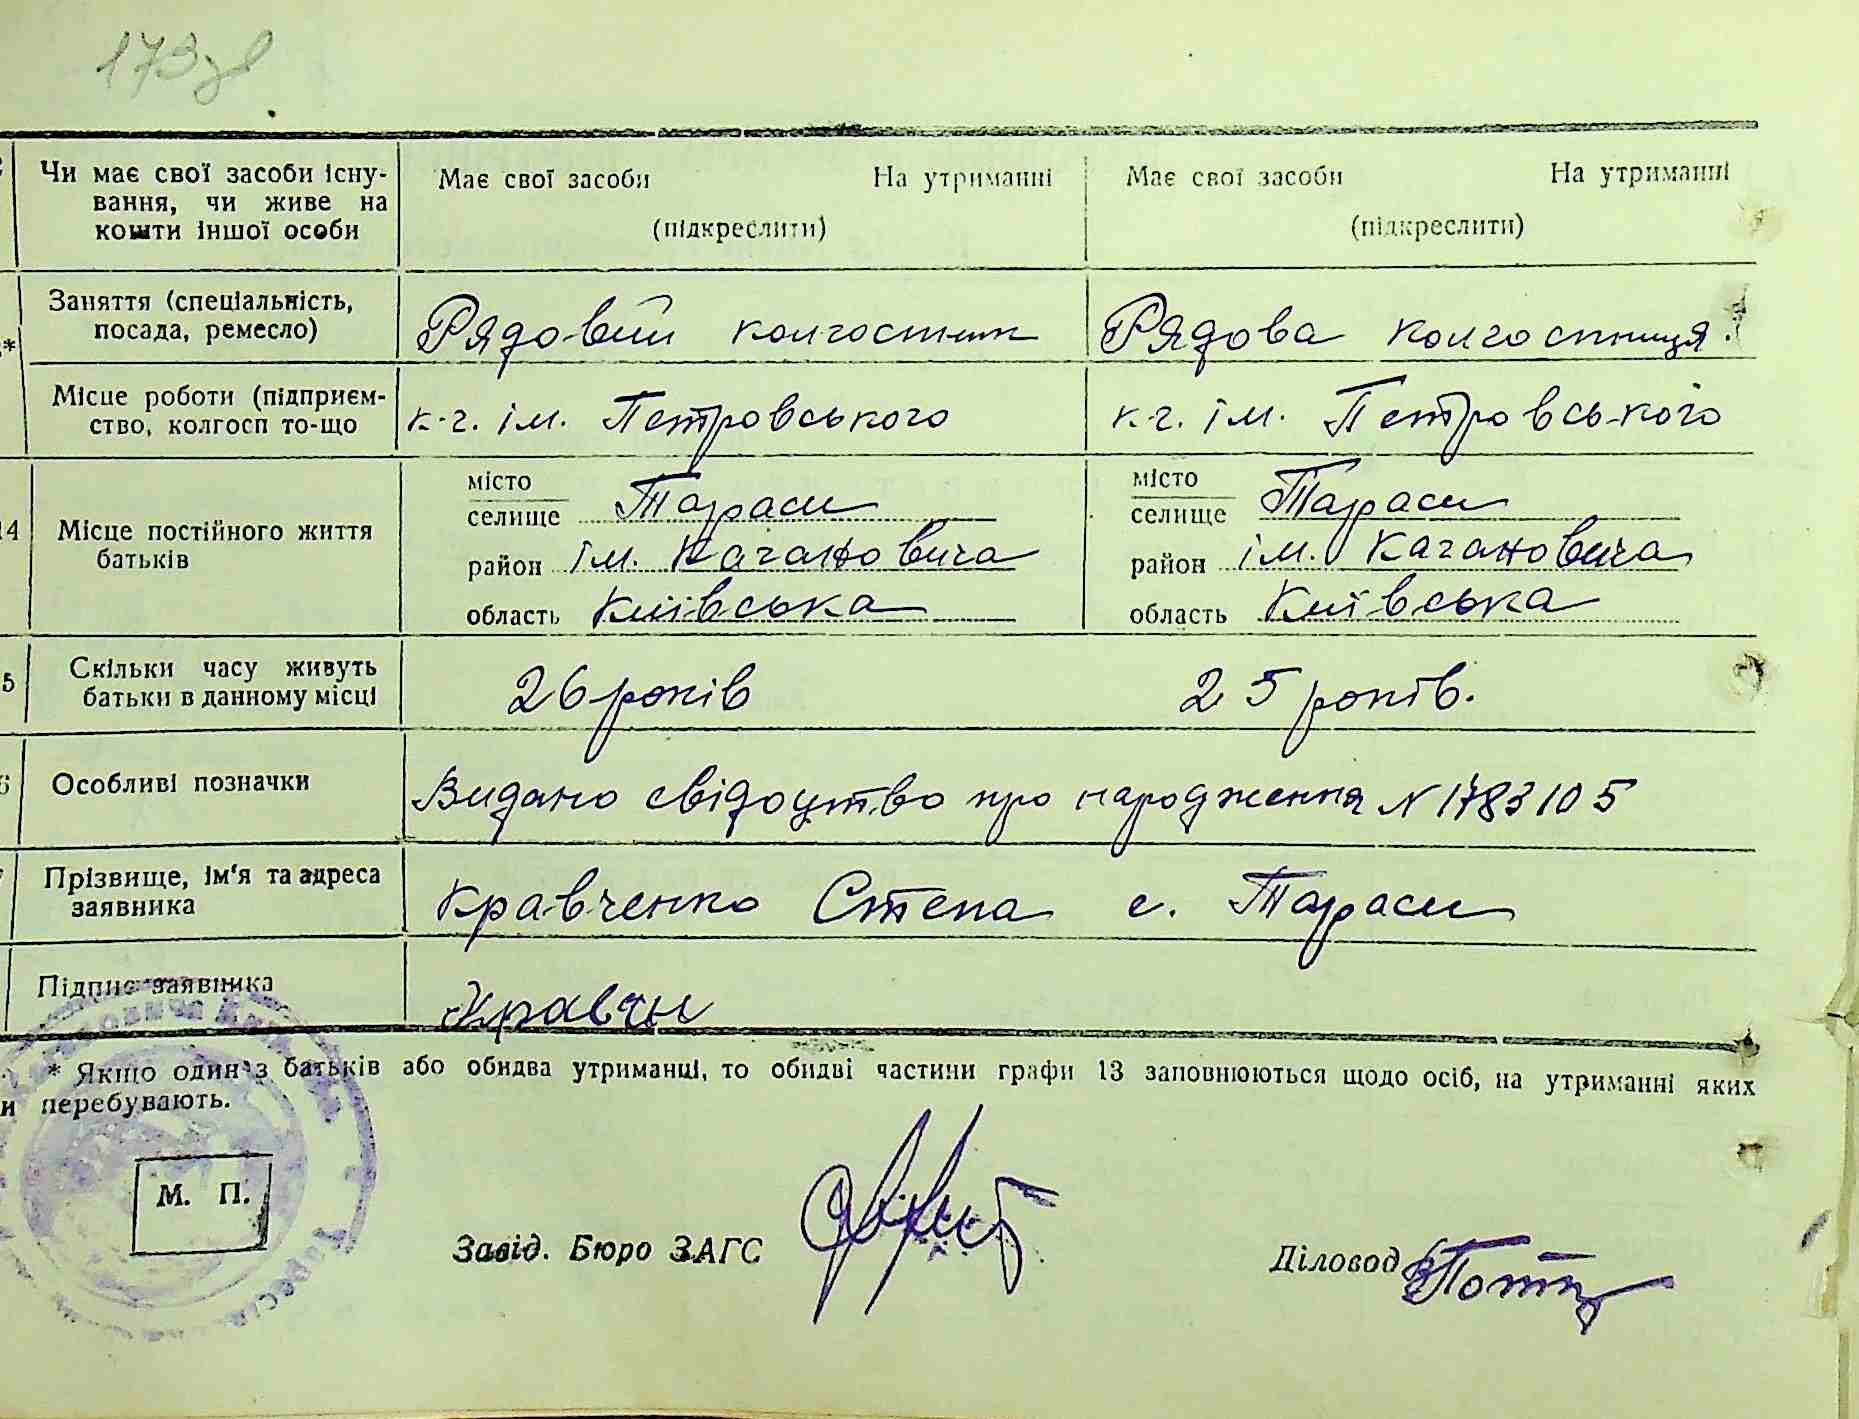 173зв
Чи має свої засоби існу-
вання, чи живе на
кошти іншої особи
Має свої засоби На утриманні
(підкреслити)
Має свої засоби На утриманні
(підкреслити)
*
Заняття (спеціальність,
посада, ремесло)
Рядовий колгоспник
Рядова колгоспниця.
Місце роботи (підприєм-
ство, колгосп то-що
к-г. ім. Петровського
к-г. ім. Петровського
14
Місце постійного життя
батьків
місто
селище Тараси
район ім. Кагановича
область Київська
місто
селище Тараси
район ім. Кагановича
область Київська
5
Скільки часу живуть
батьки в данному місці
26 років
25 років.
6
Особливі позначки
Видано свідоцтво про народження N 1783105
Прізвище, ім'я та адреса
заявника
Кравченко Степа с. Тараси
Підпис заявника
Кравчн
* Якщо один з батьків або обидва утриманці, то обидві частини графи 13 заповнюються щодо осіб, на утриманні яких
и перебувають.
М. П.
Завід. Бюро ЗАГС
Діловод